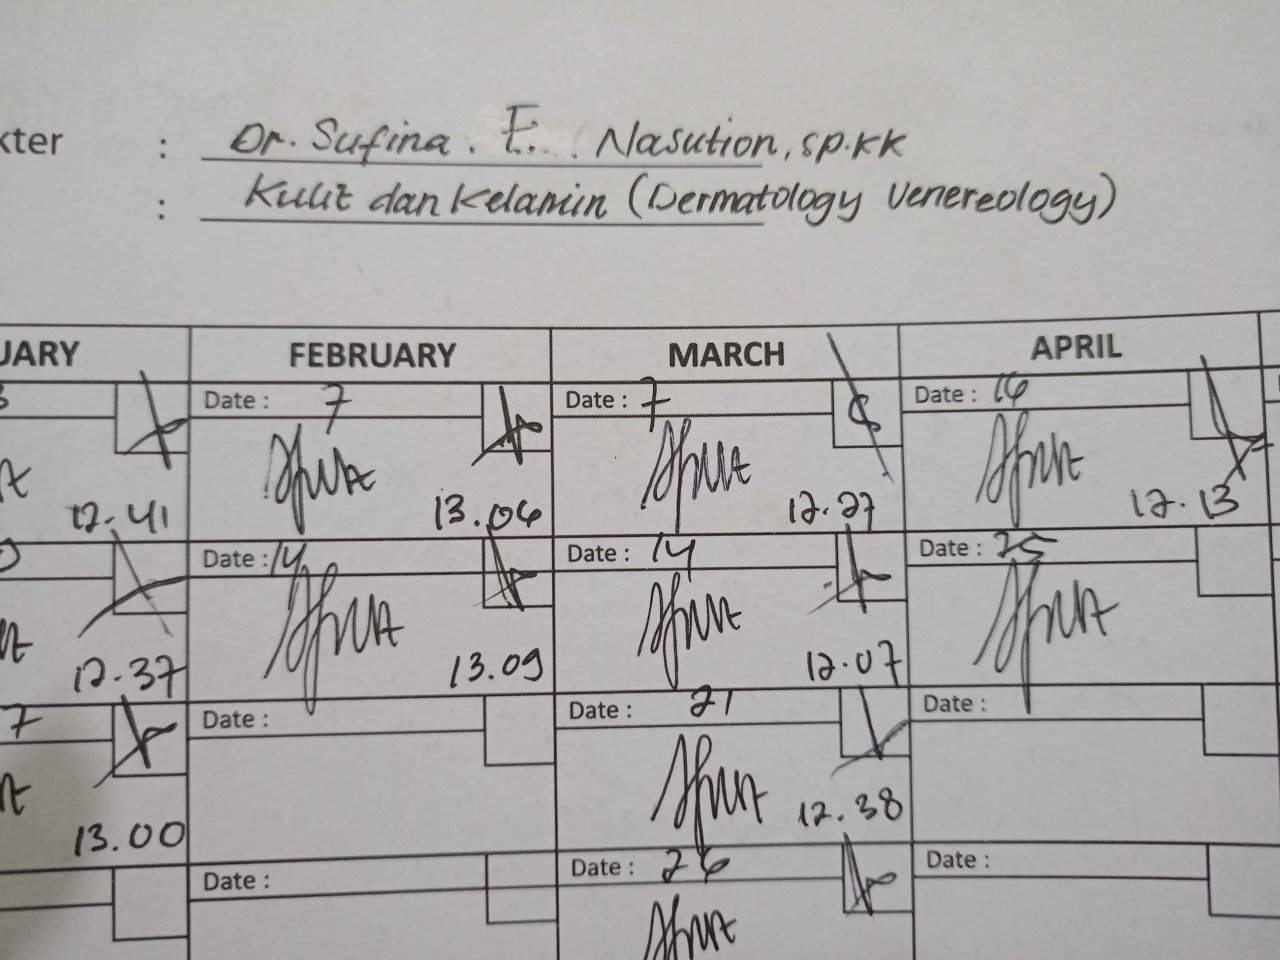 kter : Dr. Sufina. E. Nasution, sp.KK
: Kulit dan Kelamin (Dermatology Venereology)
UARY FEBRUARY MARCH APRIL
Date : 7 Date : 7 Date : 16
12.41 13.06 12.27 12.13
Date : 14 Date : 14 Date : 25
12.37 13.09 12.07
7 Date : Date : 21 Date :
13.00 12.38
Date : Date : 26 Date :